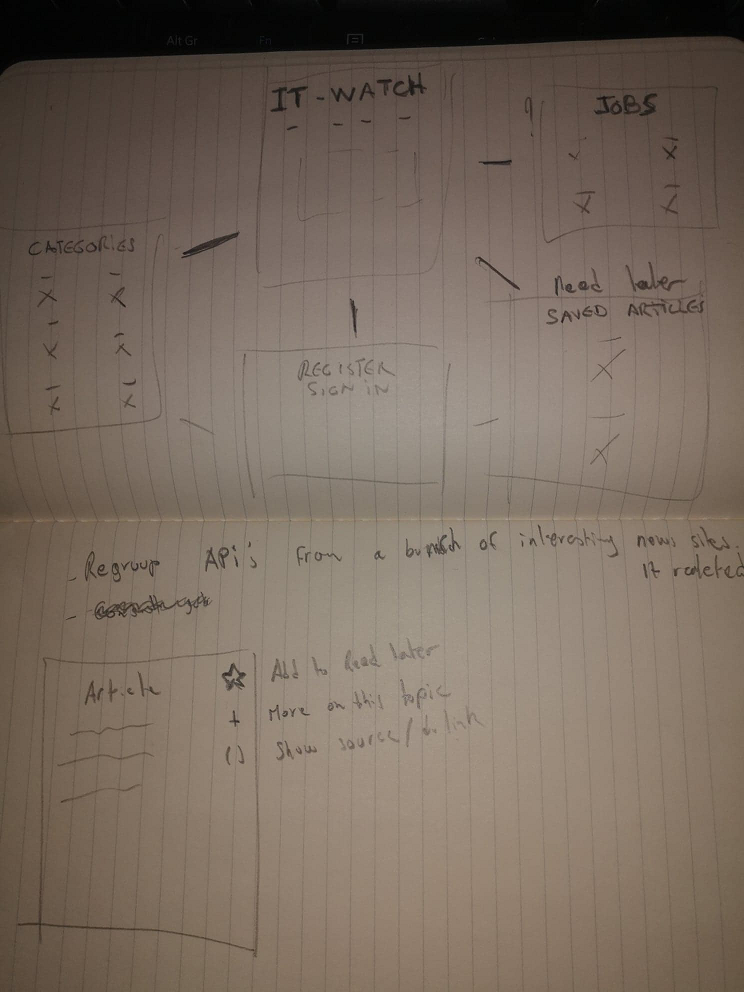 Alt Gr
Fn
IT-WATCH
? JOBS
X X
X X
CATEGORIES
X X
X X
X X
Read later
SAVED ARTICLES
X
X
REGISTER
SIGN IN
- Regroup API's from a bunch of interesting news sites.
It related
-
Article
☆ Add to Read later
+ More on this topic
() Show source / link